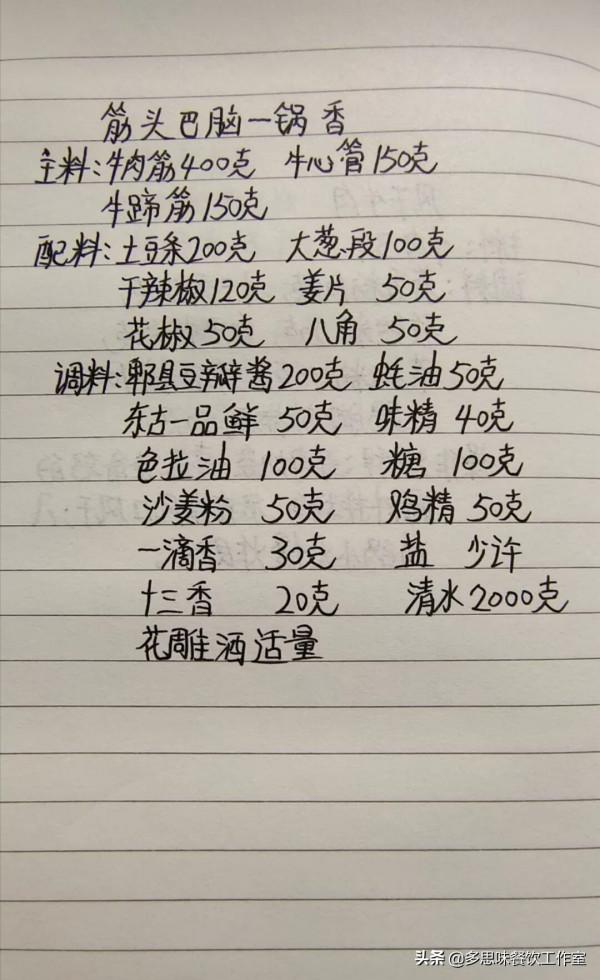 筋头巴脑一锅香
主料:牛肉筋400克 牛心管150克
牛蹄筋150克
配料:土豆条200克 大葱段100克
干辣椒120克 姜片 50克
花椒50克 八角 50克
调料:郫县豆瓣酱200克 蚝油50克
东古一品鲜 50克 味精 40克
色拉油 100克 糖 100克
沙姜粉 50克 鸡精 50克
一滴香 30克 盐 少许
十三香 20克 清水2000克
花雕酒适量
头条 @多思味餐饮工作室